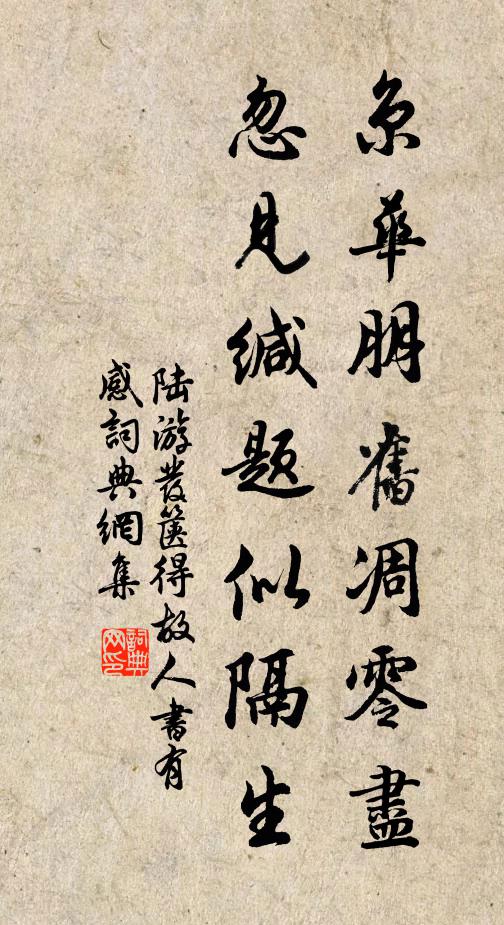 京華朋舊凋零盡
忽見緘題似隔生
陆游發篋得故人書有
感詞典網集
詞典网印